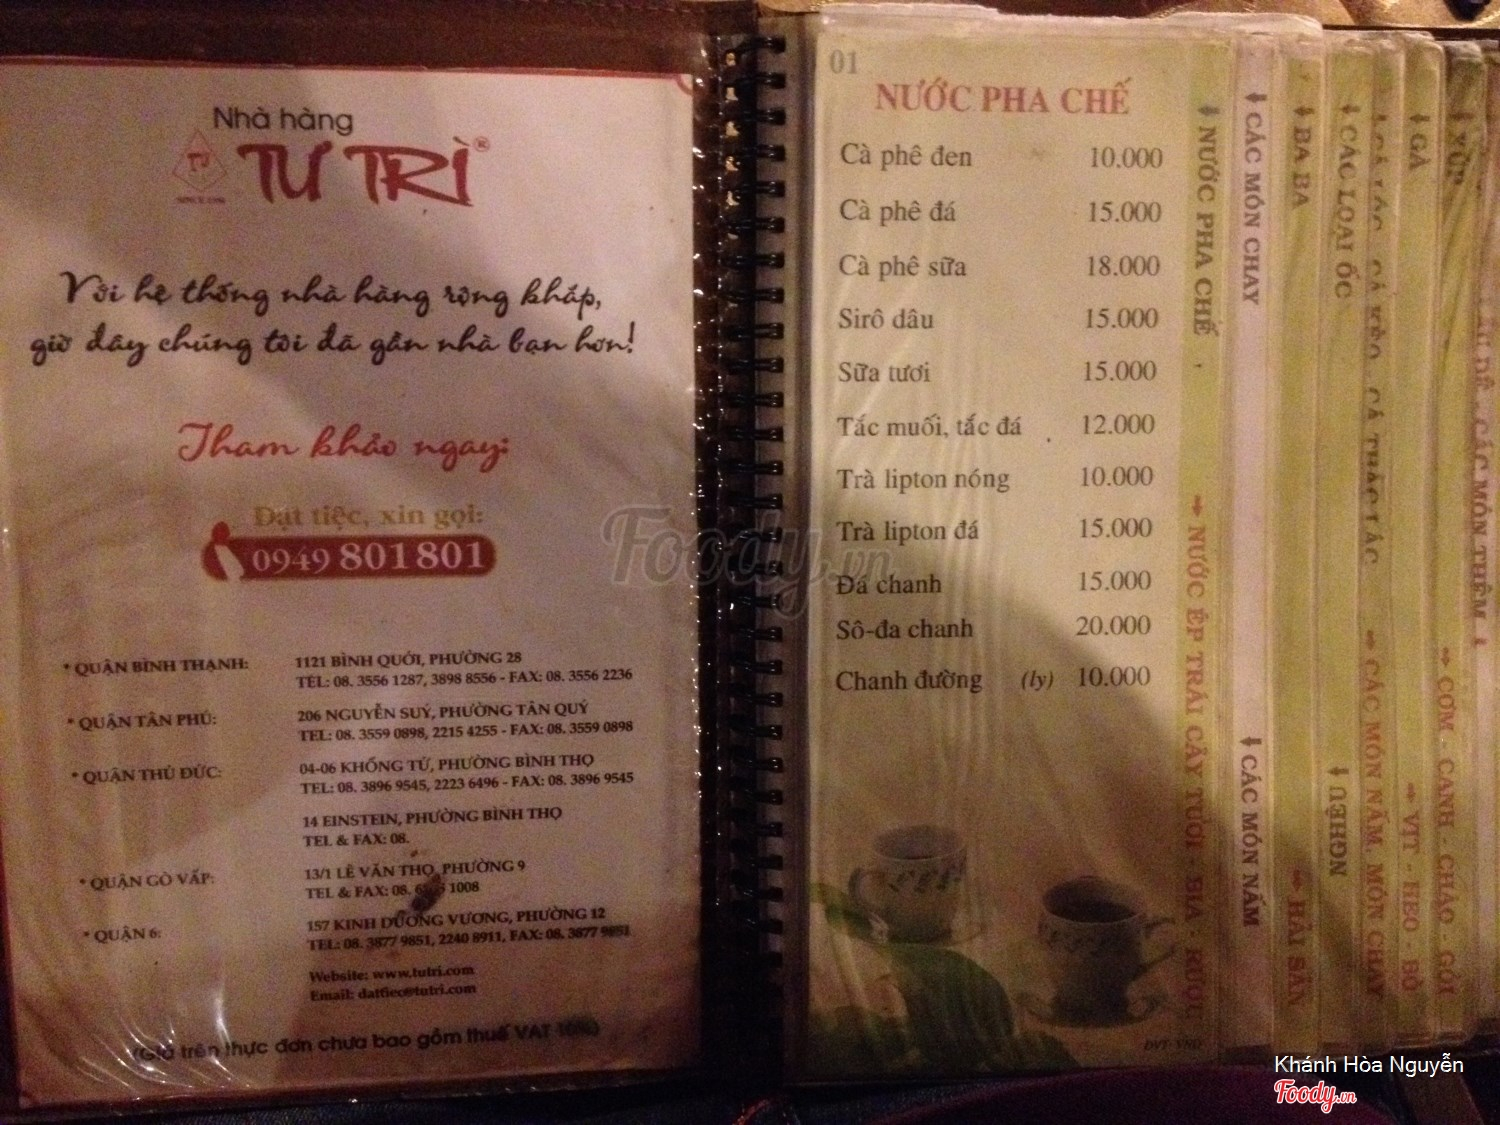 Nhà hàng
TƯ TRÌ®
Với hệ thống nhà hàng rộng khắp,
giờ đây chúng tôi đã gần nhà bạn hơn!
Tham khảo ngay:
Đặt tiệc, xin gọi:
0949 801 801
* QUẬN BÌNH THẠNH: 1121 BÌNH QUỚI, PHƯỜNG 28
TEL: 08. 3556 1287, 3898 8556 - FAX: 08. 3556 2236
* QUẬN TÂN PHÚ: 206 NGUYỄN SUÝ, PHƯỜNG TÂN QUÝ
TEL: 08. 3559 0898, 2215 4255 - FAX: 08. 3559 0898
* QUẬN THỦ ĐỨC: 04-06 KHỔNG TỬ, PHƯỜNG BÌNH THỌ
TEL: 08. 3896 9545, 2223 6496 - FAX: 08. 3896 9545
14 EINSTEIN, PHƯỜNG BÌNH THỌ
TEL & FAX: 08.
* QUẬN GÒ VẤP: 13/1 LÊ VĂN THỌ, PHƯỜNG 9
TEL & FAX: 08. 1008
* QUẬN 6: 157 KINH DƯƠNG VƯƠNG, PHƯỜNG 12
TEL: 08. 3877 9851, 2240 8911, FAX: 08. 3877 9851
Website: www.tutri.com
Email: dattiec@tutri.com
(Giá trên thực đơn chưa bao gồm thuế VAT 10%)
01
NƯỚC PHA CHẾ
Cà phê đen 10.000
Cà phê đá 15.000
Cà phê sữa 18.000
Sirô dâu 15.000
Sữa tươi 15.000
Tắc muối, tắc đá 12.000
Trà lipton nóng 10.000
Trà lipton đá 15.000
Đá chanh 15.000
Sô-đa chanh 20.000
Chanh đường (ly) 10.000
ĐVT: VNĐ
NƯỚC PHA CHẾ
NƯỚC ÉP TRÁI CÂY TƯƠI - BIA - RƯỢU
CÁC MÓN CHAY
CÁC MÓN NẤM
BA BA
HẢI SẢN
CÁC LOẠI ỐC
NGHÊU
CÁ THÁC LÁC
CÁC MÓN NẤM, MÓN CHAY
GÀ
VỊT - HEO - BÒ
XÚP
CƠM - CANH - CHÁO - GỎI
CÁC MÓN THÊM
Foody.vn
Khánh Hòa Nguyễn
Foody.vn